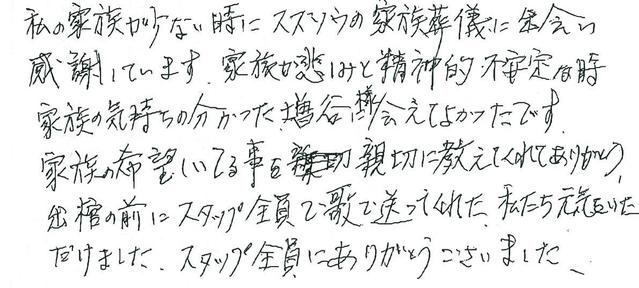 私の家族が少ない時にスズソウの家族葬儀に出会い
感謝しています。家族が悲しみと精神的不安定な時
家族の気持ちの分かった増谷様に会えてよかったです
家族の希望している事を親切に教えてくれてありがとう、
出棺の前にスタップ全員で歌で送ってくれた、私たち元気をいた
だけました、スタップ全員にありがとうございました、